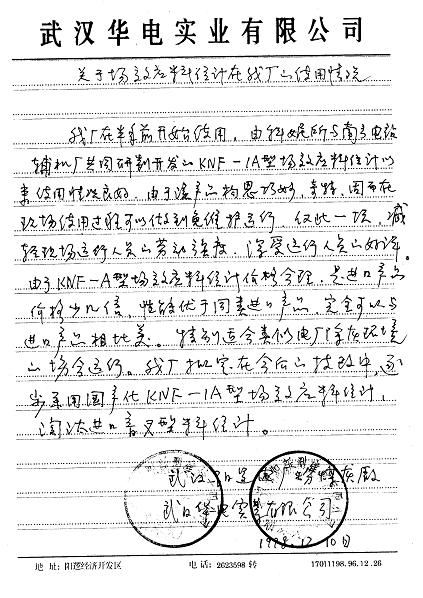 武汉华电实业有限公司
关于场效应料位计在我厂的使用情况
我厂在半年前开始使用，由科娓所与南京电站
辅机厂共同研制开发的KNF-1A型场效应料位计以
来使用情况良好，由于该产品构思巧妙，奇特，因而在
现场使用过程可以做到免维护运行，仅此一项，减
轻现场运行人员的劳动强度，深受运行人员的好评。
由于KNF-1A型场效应料位计价格合理，是进口产品
价格少几倍，性能优于同类进口产品，完全可以与
进口产品相比美。特别适合类似电厂除灰环境
的场合运行。我厂拟定在今后的技改中，逐
步采用国产化KNF-1A型场效应料位计，
淘汰进口音叉型料位计。
武汉
武汉华电实业有限公司
1998.12.10日
地 址：阳逻经济开发区 电 话：2623598 转 17011198.96.12.26